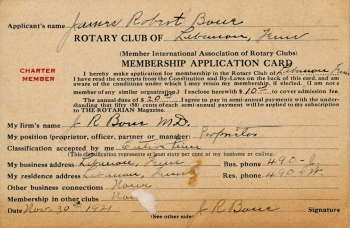 Applicant's name James Robert Bone
ROTARY CLUB OF Lebanon, Tenn
(Member International Association of Rotary Clubs)
MEMBERSHIP APPLICATION CARD
CHARTER MEMBER
I hereby make application for membership in the Rotary Club of Lebanon Tenn
I have read the excerpts from the Constitution and By-Laws on the back of this card, and am
aware of the conditions under which I may remain a member, if elected. (I am not a
member of any similar organization.) I enclose herewith $10.00 to cover admission fee.
The annual dues of $20.00 I agree to pay in semi-annual payments with the under-
standing that fifty (50) cents of each semi-annual payment will be applied to my subscription
to THE ROTARIAN Magazine.
My firm's name J R Bone M.D.
My position (proprietor, officer, partner or manager) Proprietor
Classification accepted by me
(This classification represents at least sixty per cent of my business or calling.
My business address Lebanon, Tenn Bus. phone 490-J
My residence address Lebanon, Tenn Res. phone 490-W
Other business connections None
Membership in other clubs
Date Nov. 30th 1921 J R Bone Signature
(See other side)